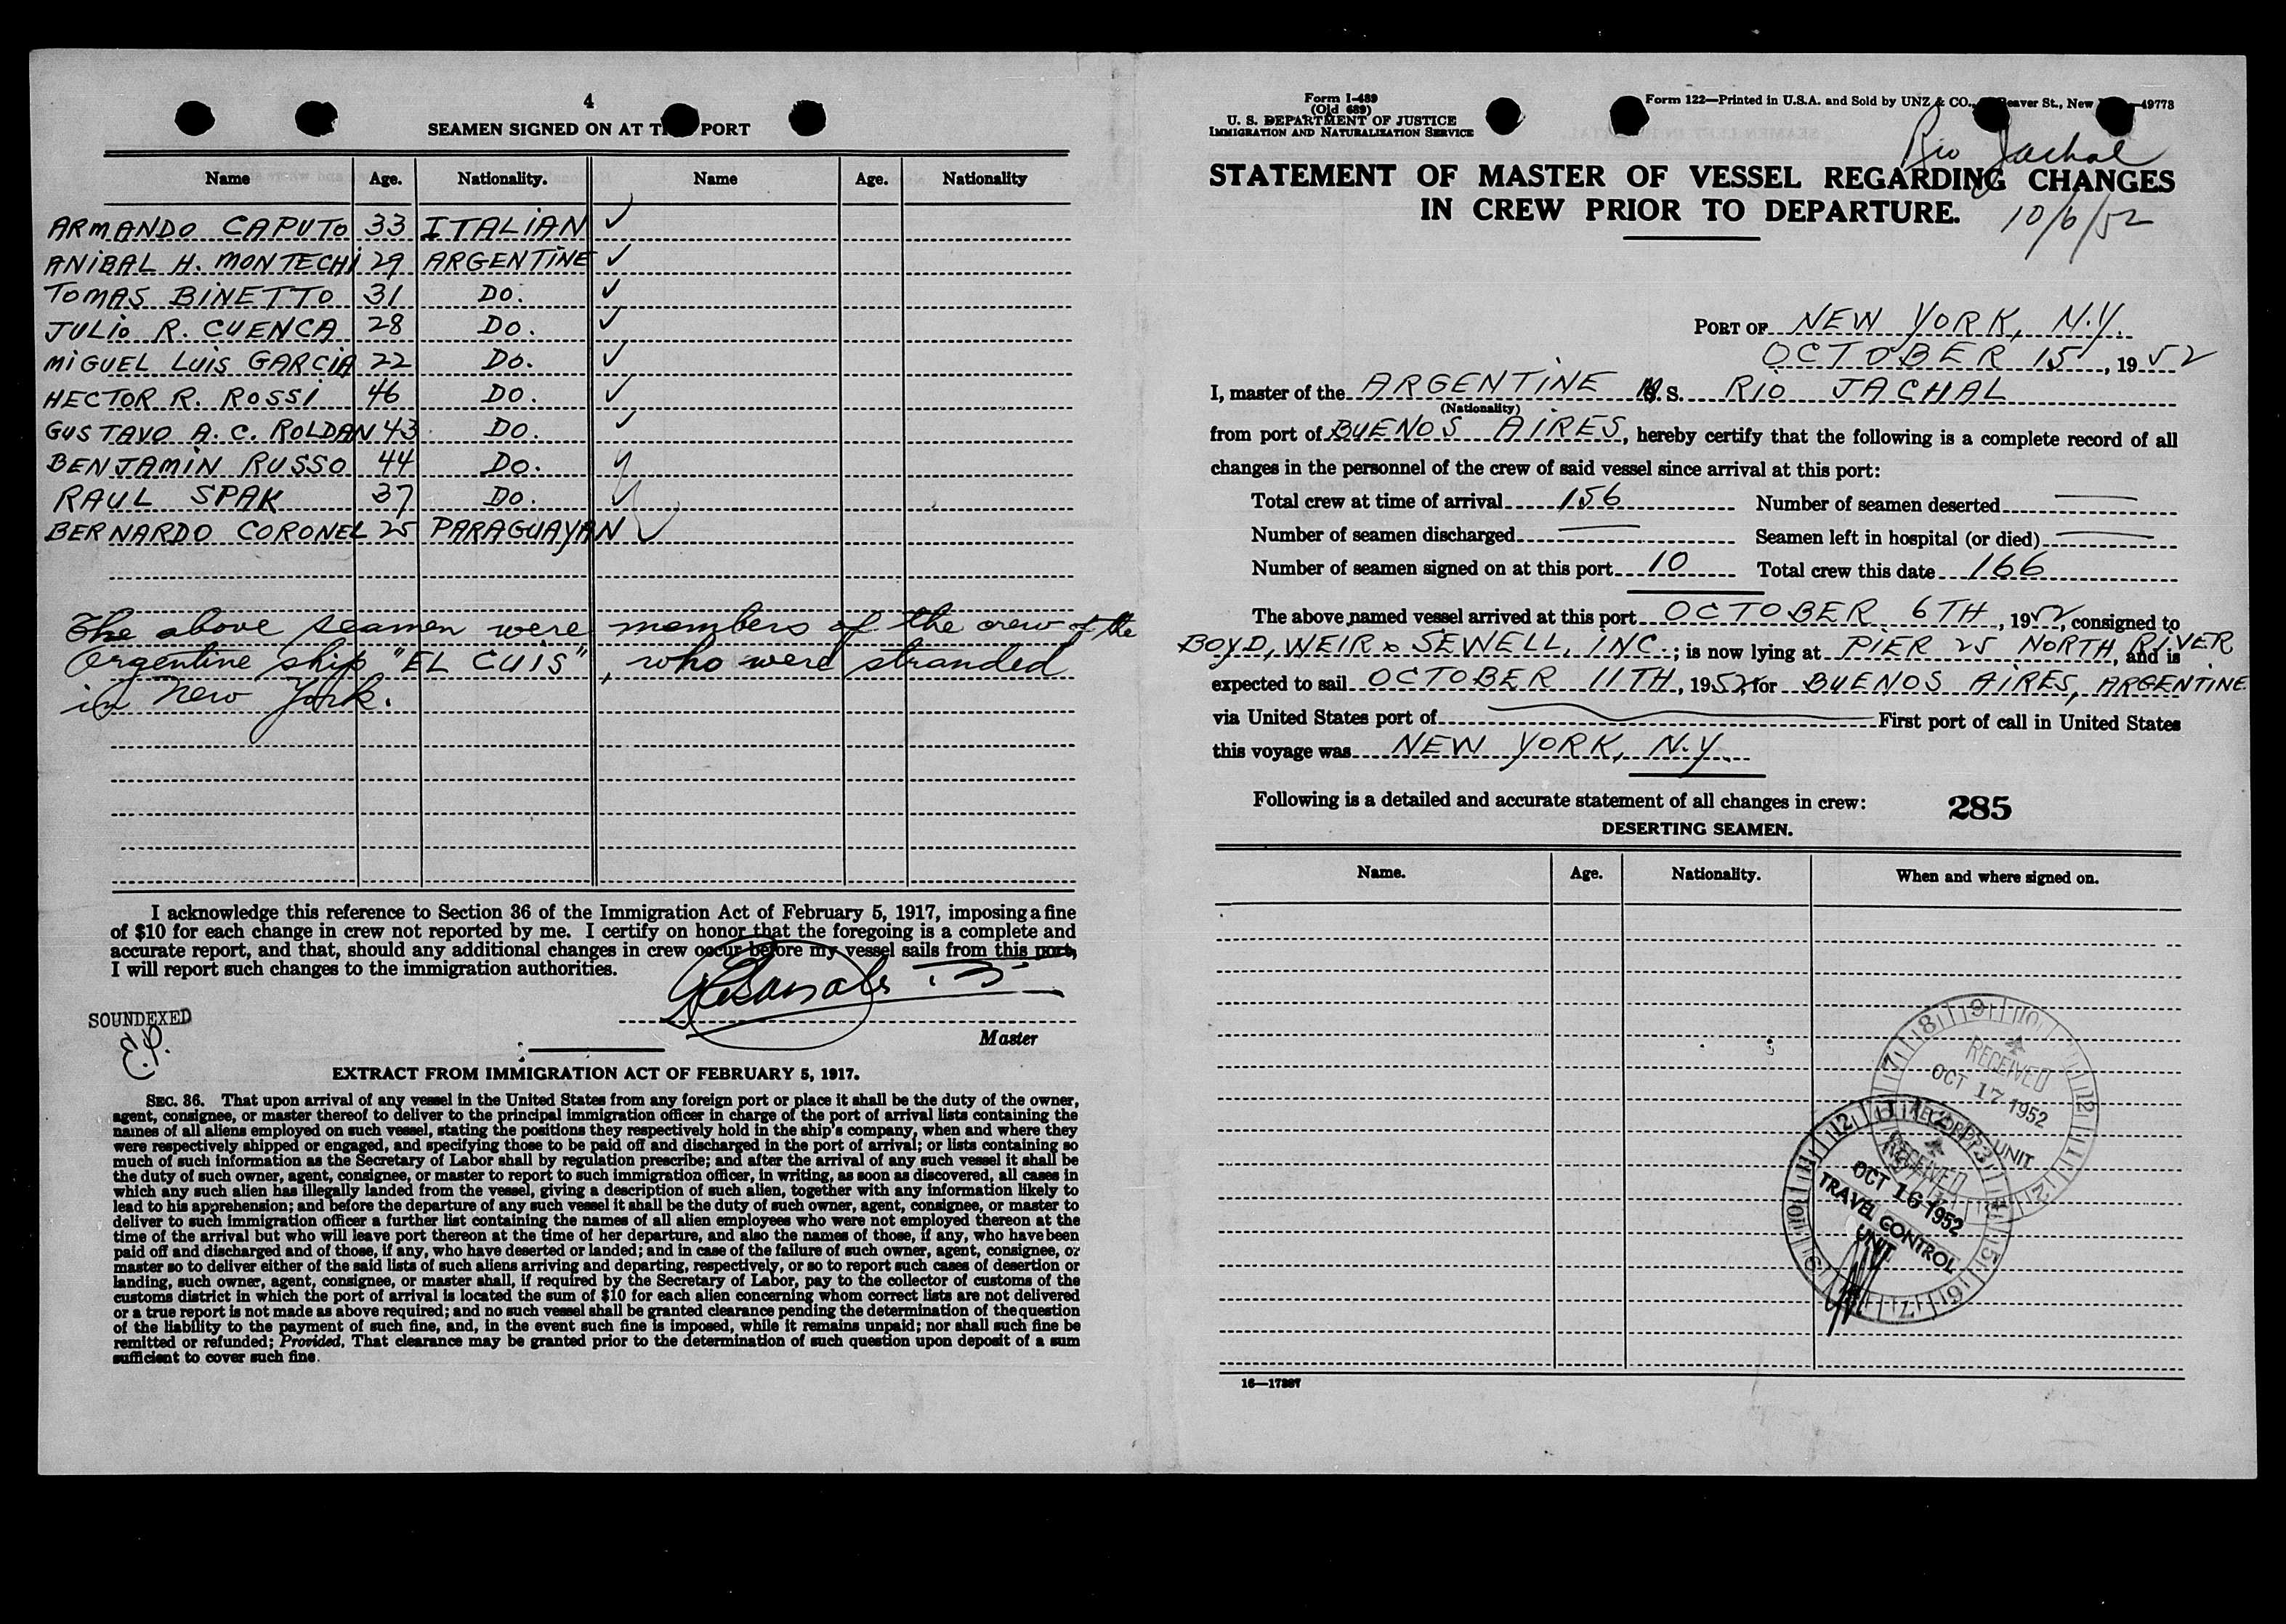 4
SEAMEN SIGNED ON AT PORT
Name Age. Nationality. Name Age. Nationality
ARMANDO CAPUTO 33 ITALIAN ✓
ANIBAL H. MONTECHI 29 ARGENTINE ✓
TOMAS BINETTO 31 DO. ✓
JULIO R. CUENCA 28 DO. ✓
MIGUEL LUIS GARCIA 22 DO. ✓
HECTOR R. ROSSI 46 DO. ✓
GUSTAVO A. C. ROLDAN 43 DO. ✓
BENJAMIN RUSSO 44 DO. ✓
RAUL SPAK 37 DO. ✓
BERNARDO CORONEL 25 PARAGUAYAN ✓
The above seamen were members of the crew of the
Argentine ship "EL CUIS", who were stranded
in New York.
I acknowledge this reference to Section 36 of the Immigration Act of February 5, 1917, imposing a fine
of $10 for each change in crew not reported by me. I certify on honor that the foregoing is a complete and
accurate report, and that, should any additional changes in crew occur before my vessel sails from this port,
I will report such changes to the immigration authorities.
SOUNDEXED
Master
EXTRACT FROM IMMIGRATION ACT OF FEBRUARY 5, 1917.
SEC. 36. That upon arrival of any vessel in the United States from any foreign port or place it shall be the duty of the owner,
agent, consignee, or master thereof to deliver to the principal immigration officer in charge of the port of arrival lists containing the
names of all aliens employed on such vessel, stating the positions they respectively hold in the ship's company, when and where they
were respectively shipped or engaged, and specifying those to be paid off and discharged in the port of arrival; or lists containing so
much of such information as the Secretary of Labor shall by regulation prescribe; and after the arrival of any such vessel it shall be
the duty of such owner, agent, consignee, or master to report to such immigration officer, in writing, as soon as discovered, all cases in
which any such alien has illegally landed from the vessel, giving a description of such alien, together with any information likely to
lead to his apprehension; and before the departure of any such vessel it shall be the duty of such owner, agent, consignee, or master to
deliver to such immigration officer a further list containing the names of all alien employees who were not employed thereon at the
time of the arrival but who will leave port thereon at the time of her departure, and also the names of those, if any, who have been
paid off and discharged and of those, if any, who have deserted or landed; and in case of the failure of such owner, agent, consignee, or
master so to deliver either of the said lists of such aliens arriving and departing, respectively, or so to report such cases of desertion or
landing, such owner, agent, consignee, or master shall, if required by the Secretary of Labor, pay to the collector of customs of the
customs district in which the port of arrival is located the sum of $10 for each alien concerning whom correct lists are not delivered
or a true report is not made as above required; and no such vessel shall be granted clearance pending the determination of the question
of the liability to the payment of such fine, and, in the event such fine is imposed, while it remains unpaid; nor shall such fine be
remitted or refunded; Provided, That clearance may be granted prior to the determination of such question upon deposit of a sum
sufficient to cover such fine.
Form I-489
(Old 689)
U. S. DEPARTMENT OF JUSTICE
IMMIGRATION AND NATURALIZATION SERVICE
Form 122—Printed in U.S.A. and Sold by UNZ & CO., Beaver St., New —49778
Rio Jachal
STATEMENT OF MASTER OF VESSEL REGARDING CHANGES
IN CREW PRIOR TO DEPARTURE.
10/6/52
PORT OF NEW YORK, N.Y.
OCTOBER 15, 1952
I, master of the ARGENTINE M. S. RIO JACHAL
(Nationality)
from port of BUENOS AIRES, hereby certify that the following is a complete record of all
changes in the personnel of the crew of said vessel since arrival at this port:
Total crew at time of arrival 156 Number of seamen deserted —
Number of seamen discharged — Seamen left in hospital (or died) —
Number of seamen signed on at this port 10 Total crew this date 166
The above named vessel arrived at this port OCTOBER 6TH, 1952, consigned to
BOYD, WEIR & SEWELL, INC.; is now lying at PIER 25 NORTH RIVER, and is
expected to sail OCTOBER 11TH, 1952, for BUENOS AIRES, ARGENTINE
via United States port of First port of call in United States
this voyage was NEW YORK, N.Y.
Following is a detailed and accurate statement of all changes in crew: 285
DESERTING SEAMEN.
Name. Age. Nationality. When and where signed on.
RECEIVED
OCT 17 1952
RECORDS UNIT
RECEIVED
OCT 16 1952
TRAVEL CONTROL
UNIT
16—17387